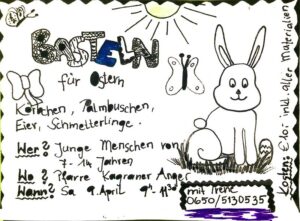 BASTELN
für Ostern
Körbchen, Palmbuschen,
Eier, Schmetterlinge.
Wer? Junge Menschen von
7-14 Jahren
Wo? Pfarre Kagraner Anger
Wann? Sa 9. April 9h-11
mit Irene
0650/5130535
Kosten: inkl. aller Materialien